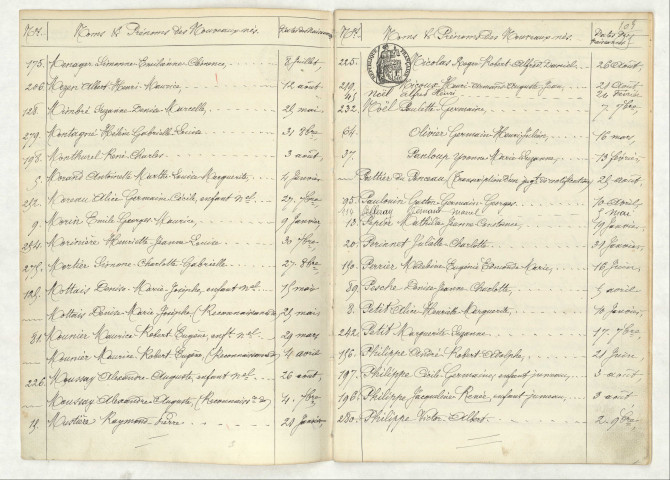 Nos. Noms & Prénoms des Nouveaux-nés. Dates des Naissances
175. Menager Simonne Emilienne Clemence, 8 Juillet
206. Mezen Albert Henri Maurice, 12 août
128. Suzanne Denise Marcelle, 25 mai
279. Montagné Hélène Gabrielle Louise 31 8bre
198. Monthurel René Charles 3 août
5. Morand Antoinette Marthe Louise Marguerite, 4 Janvier
252. Moreau Alice Germaine Cécile, enfant nel. 27 7bre
9. Morin Emile Georges Maurice, 9 Janvier
254. Morinière Henriette Jeanne Louise 30 7bre
275. Mortier Simonne Charlotte Gabrielle 27 8bre
125. Mottais Denise Marie Josèphe, enfant nel. 15 mai
Mottais Denise Marie Josèphe (Reconnaissance) 25 mai
81. Mounier Maurice Robert Eugène, enft nel. 29 mars
Mounier Maurice Robert Eugène (Reconnaissance) 4 avril
226. Moussay Alexandre Auguste, enfant nel. 26 août
Moussay Alexandre Auguste, (Reconnaissance) 4 7bre
19. Mustière Raymond Pierre 20 Janvier
109
Nos. Noms & Prénoms des Nouveaux-nés. Dates des Naissances
225. Nicolas Roger Robert Alfred Daniel 26 août
210. Henri Armand Auguste Jean, 21 Août
45 Noël Alfred Henri 20 Février
232. Noël Paulette Germaine, 7 7bre
64. Olivier Germain Henri Julien, 16 mars
37. Panloup Yvonne Marie Suzanne, 13 février
du Ponceau (Transcription d'un jugt de rectification) 25 août
95. Paulouin Gaston Germain Georges 10 Avril
114 Fernand Marcel 5 mai
18. Pepin Mathilde Jeanne Constance, 19 Janvier
20. Perionet Juliette Charlotte 21 Janvier
150. Perrier Madeleine Eugénie Edmonde Marie, 10 Juin
89. Pesche Denise Jeanne Charlotte, 5 avril
8. Petit Alice Henriette Marguerite, 10 Janvier
242. Petit Marguerite Suzanne 17 7bre
156. Philippe André Robert Adolphe, 21 Juin
197. Philippe Cécile Germaine, enfant jumeau, 3 août
196. Philippe Jacqueline Renée, enfant jumeau 3 août
280. Philippe Victor Albert 2 9bre